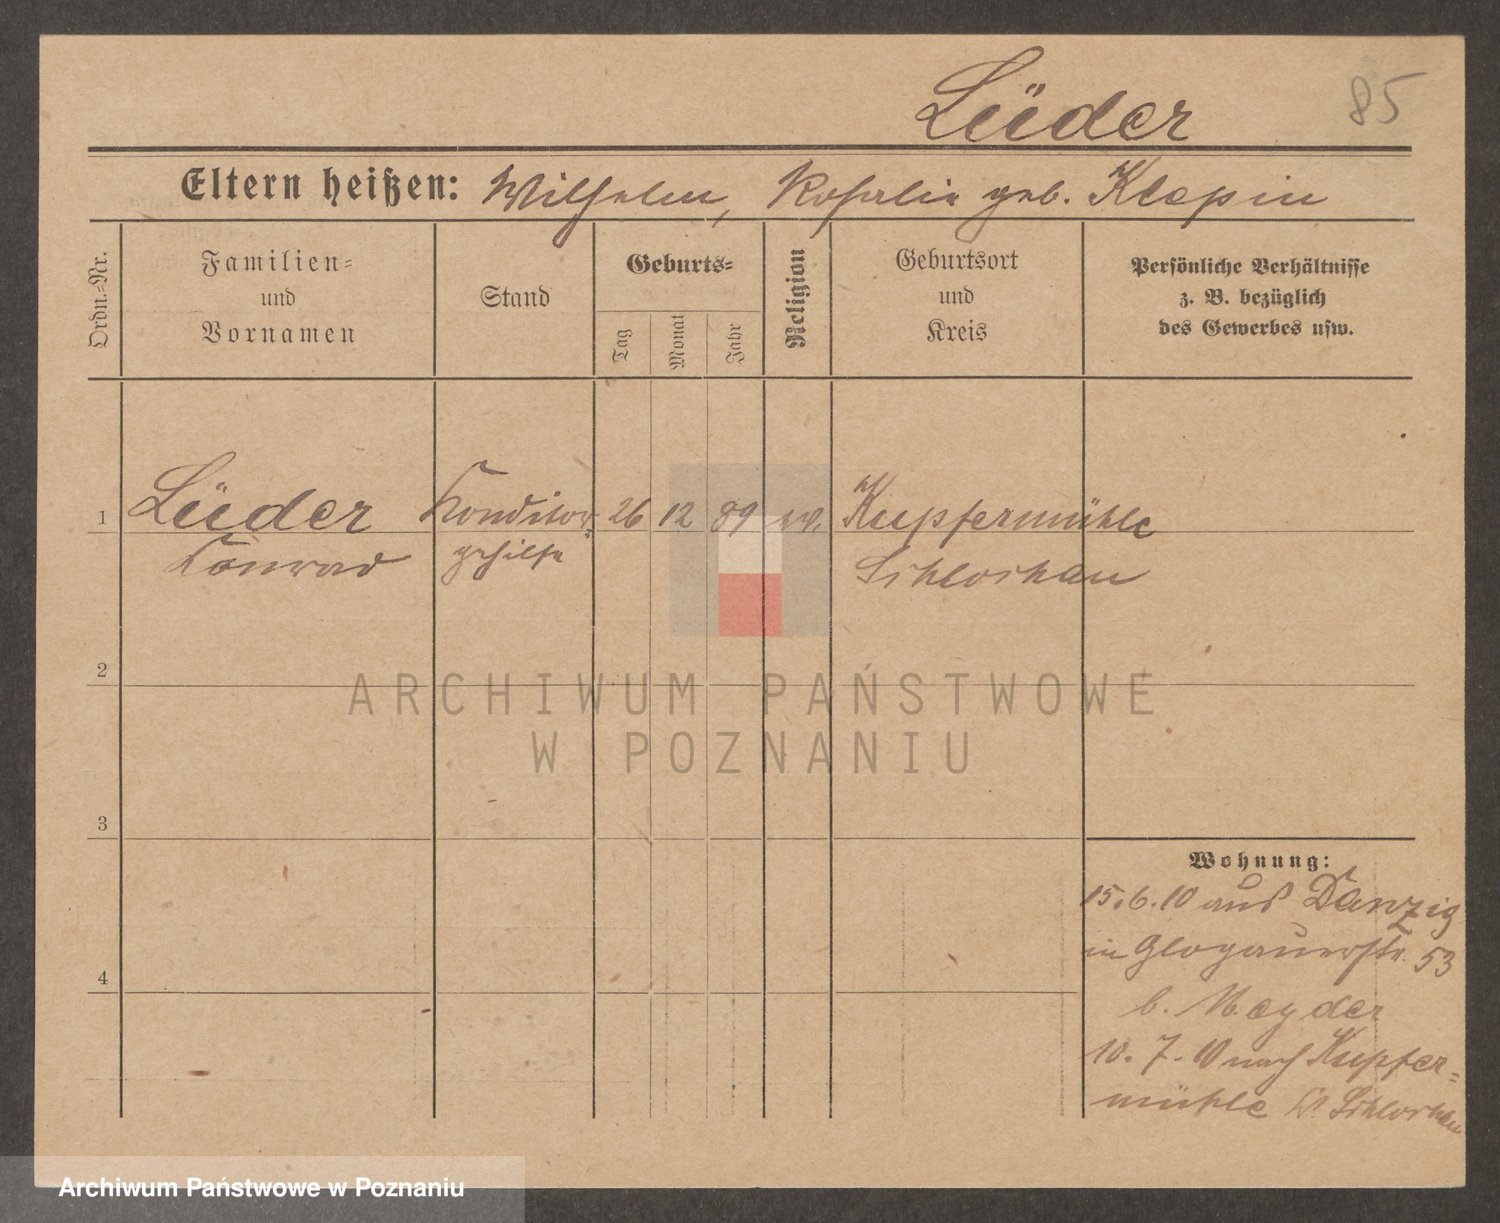 Lüder
85
Eltern heißen: Wilhelm, Rosalie geb. Klepin
Ordn.-Nr.
Familien-
und
Vornamen
Stand
Geburts-
Tag
Monat
Jahr
Religion
Geburtsort
und
Kreis
Persönliche Verhältnisse
z. B. bezüglich
des Gewerbes usw.
1 Lüder Konditor 26 12 89 ev. Kupfermühle
Konrad gehilfe Schlochau
2
3
4
Wohnung:
15.6.10 aus Danzig
in Glogauerstr. 53
b. Meyder
10.7.10 nach Kupfer-
mühle Schlochau
ARCHIWUM PAŃSTWOWE
W POZNANIU
Archiwum Państwowe w Poznaniu